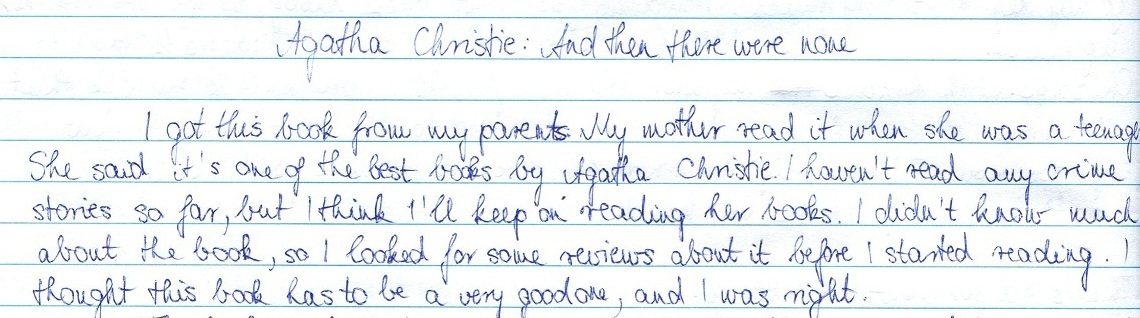 Agatha Christie: And then there were none
I got this book from my parents. My mother read it when she was a teenag
She said it's one of the best books by Agatha Christie. I haven't read any crime
stories so far, but I think I'll keep on reading her books. I didn't know much
about the book, so I looked for some reviews about it before I started reading. I
thought this book has to be a very good one, and I was right.